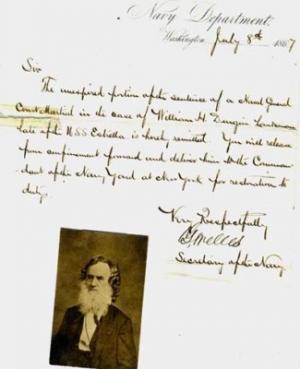 Navy Department.
Washington, July 8th 1867
Sir
The unexpired portion of the sentence of a Naval General
Court Martial in the case of William H. Durgin Landsman
late of the USS Estrella is hereby remitted. You will release
from confinement forward and deliver him to the Comman-
dant of the Navy Yard at New York for restoration to
duty.
Very Respectfully
G Welles
Secretary of the Navy